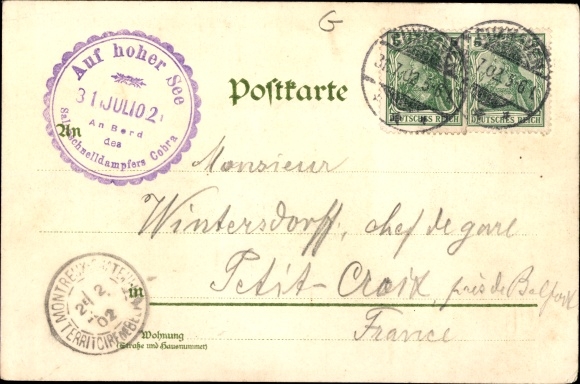 G
Auf hoher See
31 JULI 02
An Bord
des
Salonschnelldampfers Cobra
CUXHAVEN
7.02.3-6
DEUTSCHES REICH
DEUTSCHES REICH
Postkarte
An
Monsieur
Wintersdorff, chef de gare
in Petit-Croix, près de Belfort
France
TERRITOIRE DE BELFORT
02
Wohnung
(Straße und Hausnummer)